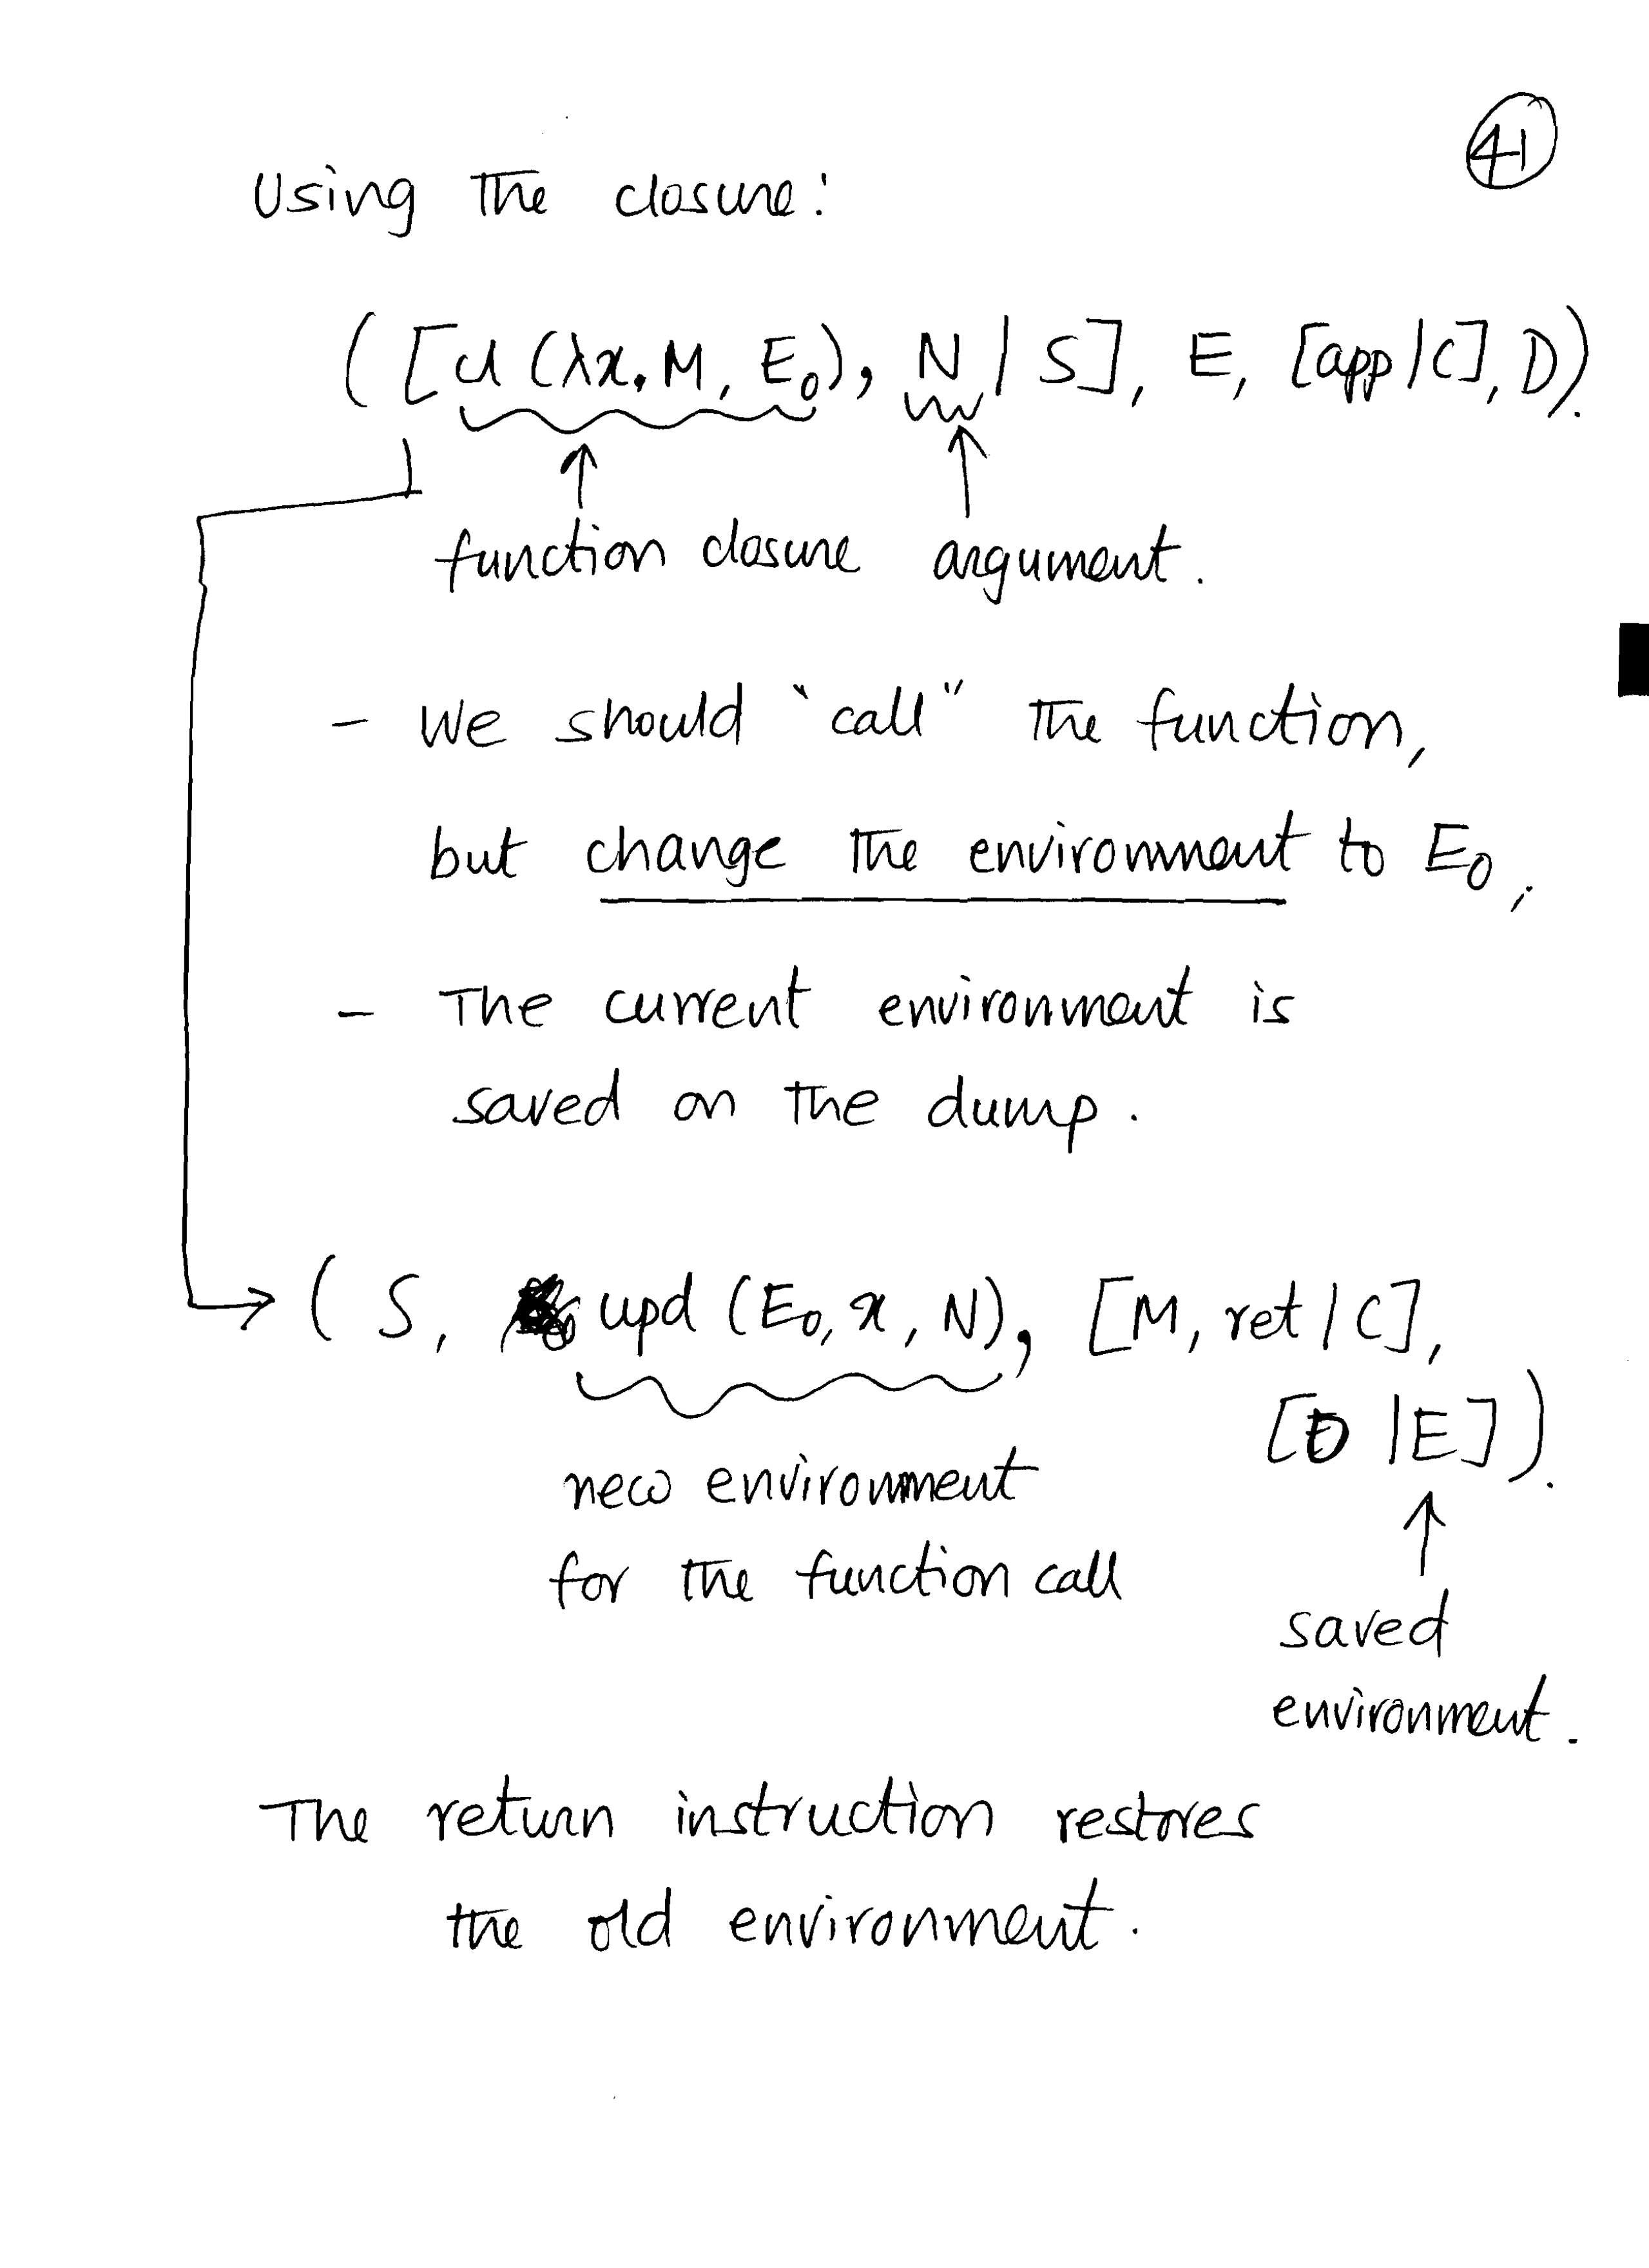 41
Using the closure:
([cl (λx.M, E₀), N | S], E, [app | C], D).
function closure argument.
- We should "call" the function,
but change the environment to E₀,
- The current environment is
saved on the dump.
( S, upd (E₀, x, N), [M, ret | C],
[D | E]).
new environment
for the function call
saved
environment.
The return instruction restores
the old environment.